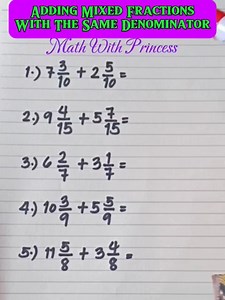 Adding Mixed Fractions
With The Same Denominator
Math With Princess
1.) 7 3/10 + 2 5/10 =
2.) 9 4/15 + 5 7/15 =
3.) 6 2/7 + 3 1/7 =
4.) 10 3/9 + 5 5/9 =
5.) 11 5/8 + 3 4/8 =